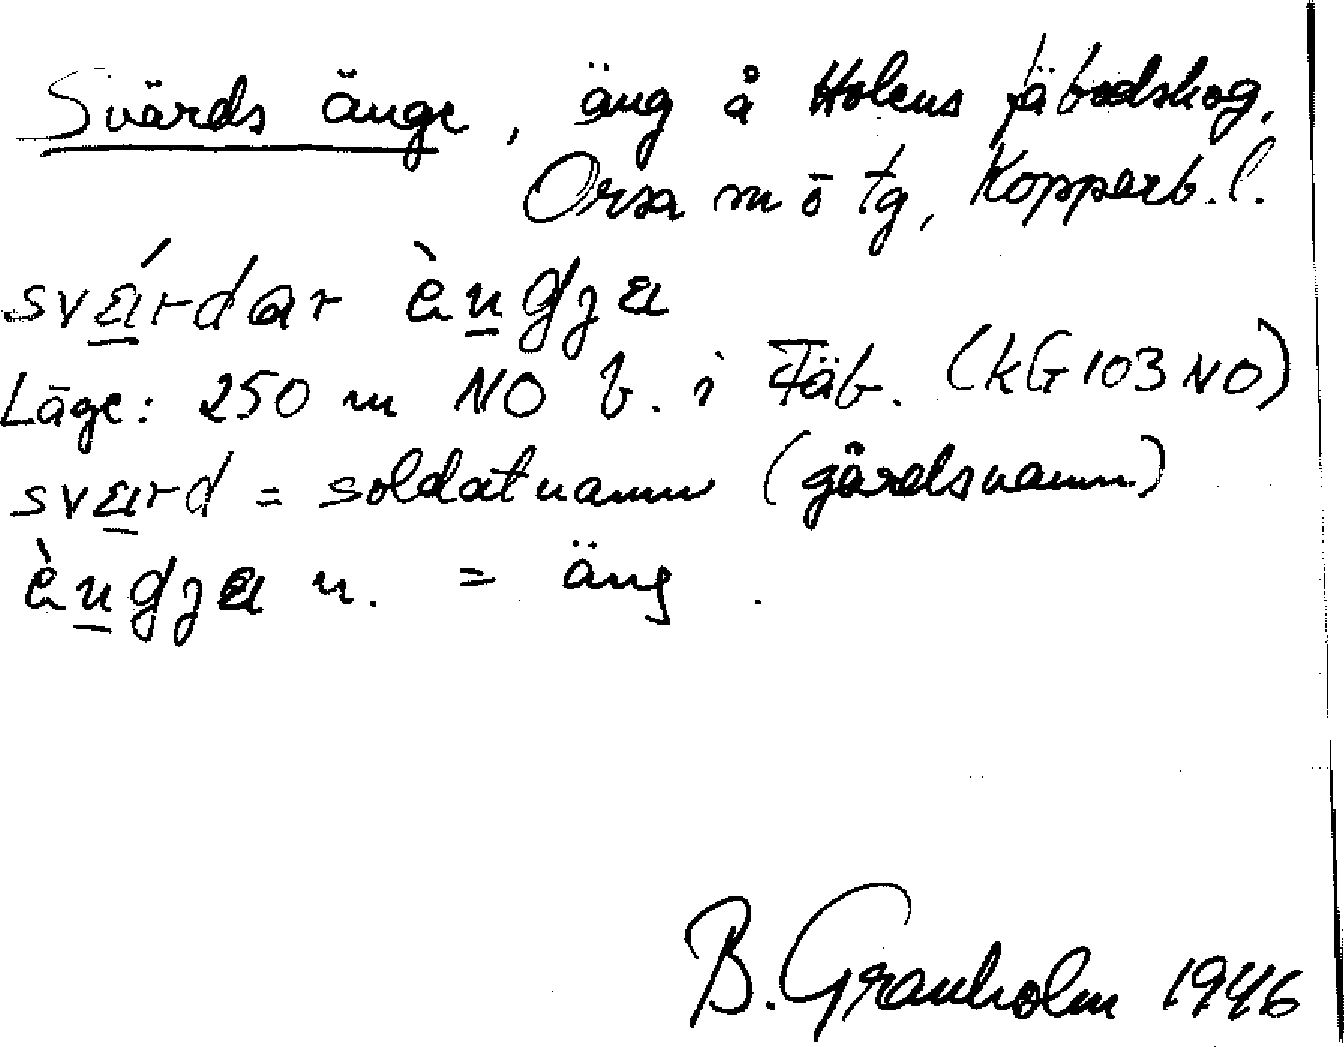 Svärds änge, äng å Holens fäbodskog,
Orsa m ö tg, Kopparb. l.
svárdar èngja
Läge: 250 m NO b. i Fäb. (kG 103 NO)
svard = soldatnamn (gårdsnamn)
èngja n. = äng.
B. Granholm 1946